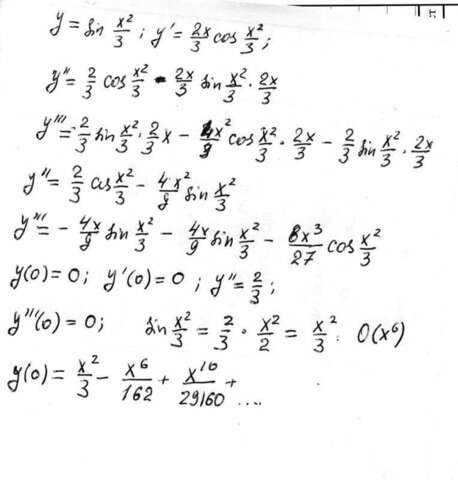 y = sin x²/3 ; y' = 2x/3 cos x²/3 ;
y'' = 2/3 cos x²/3 - 2x/3 sin x²/3 · 2x/3
y''' = -2/3 sin x²/3 · 2/3 x - 4x²/9 cos x²/3 · 2x/3 - 2/3 sin x²/3 · 2x/3
y'' = 2/3 cos x²/3 - 4x²/9 sin x²/3
y''' = - 4x/9 sin x²/3 - 4x/9 sin x²/3 - 8x³/27 cos x²/3
y(0) = 0; y'(0) = 0 ; y'' = 2/3 ;
y'''(0) = 0; sin x²/3 = 2/3 · x²/2 = x²/3 . O(x⁶)
y(0) = x²/3 - x⁶/162 + x¹⁰/29160 + ....